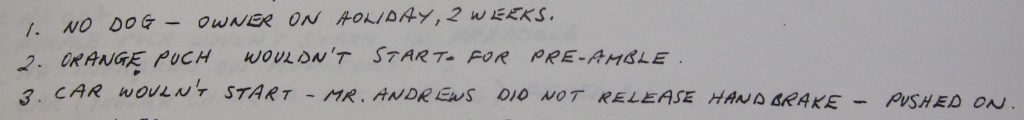 1. NO DOG - OWNER ON HOLIDAY, 2 WEEKS.
2. ORANGE PUCH WOULDN'T START. FOR PRE-AMBLE.
3. CAR WOULN'T START - MR. ANDREWS DID NOT RELEASE HANDBRAKE - PUSHED ON.